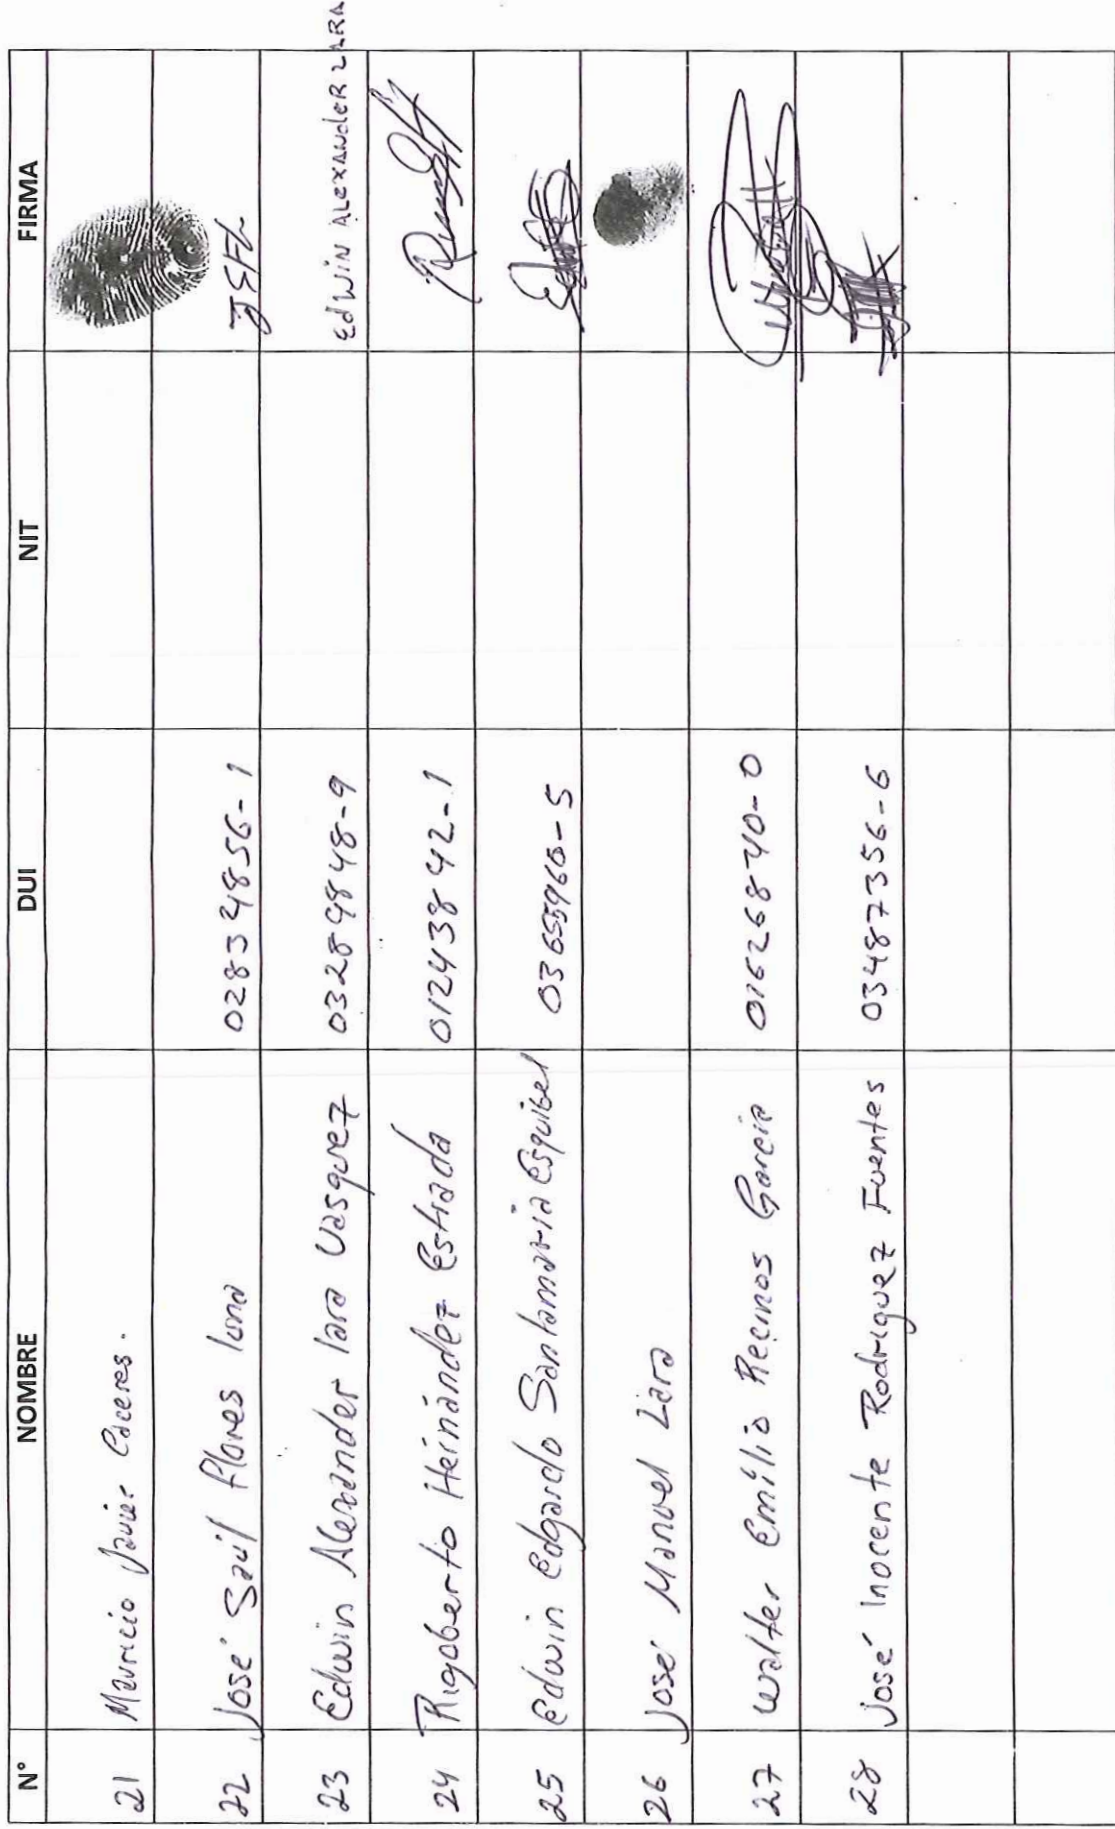 N° NOMBRE DUI NIT FIRMA
21 Mauricio Javier Cáceres.
22 José Saúl Flores luna 02834856-1 JSFL
23 Edwin Alexander lara Vasquez 03289848-9 EdWiN ALexANdeR LARA
24 Rigoberto Hernández Estrada 01243842-1
25 Edwin Edgardo Santamaria Esquibel 03655960-5
26 José Manuel Lara
27 Walter Emilio Recinos García 01626840-0
28 José Inocente Rodriguez Fuentes 03487356-6